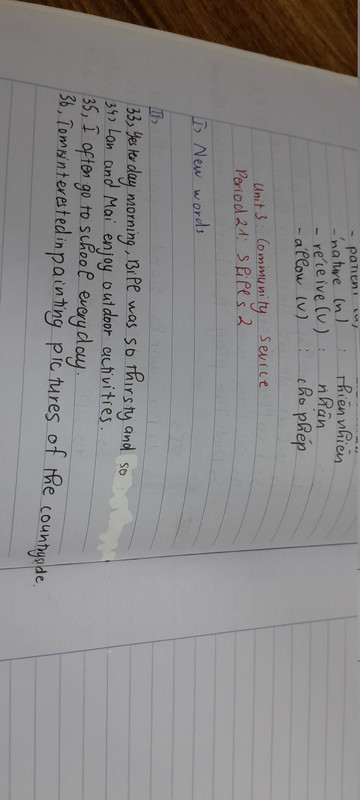 - nature (n) : thiên nhiên
- receive (v) : nhận
- allow (v) : cho phép
Unit 3: Community Sevice
Period 21: Skills 2
I, New words
II,
33, Yesterday morning, Bill was so thirsty and so
34, Lan and Mai enjoy outdoor activities.
35, I often go to school everyday.
36, Tom is interested in painting pictures of the countryside.